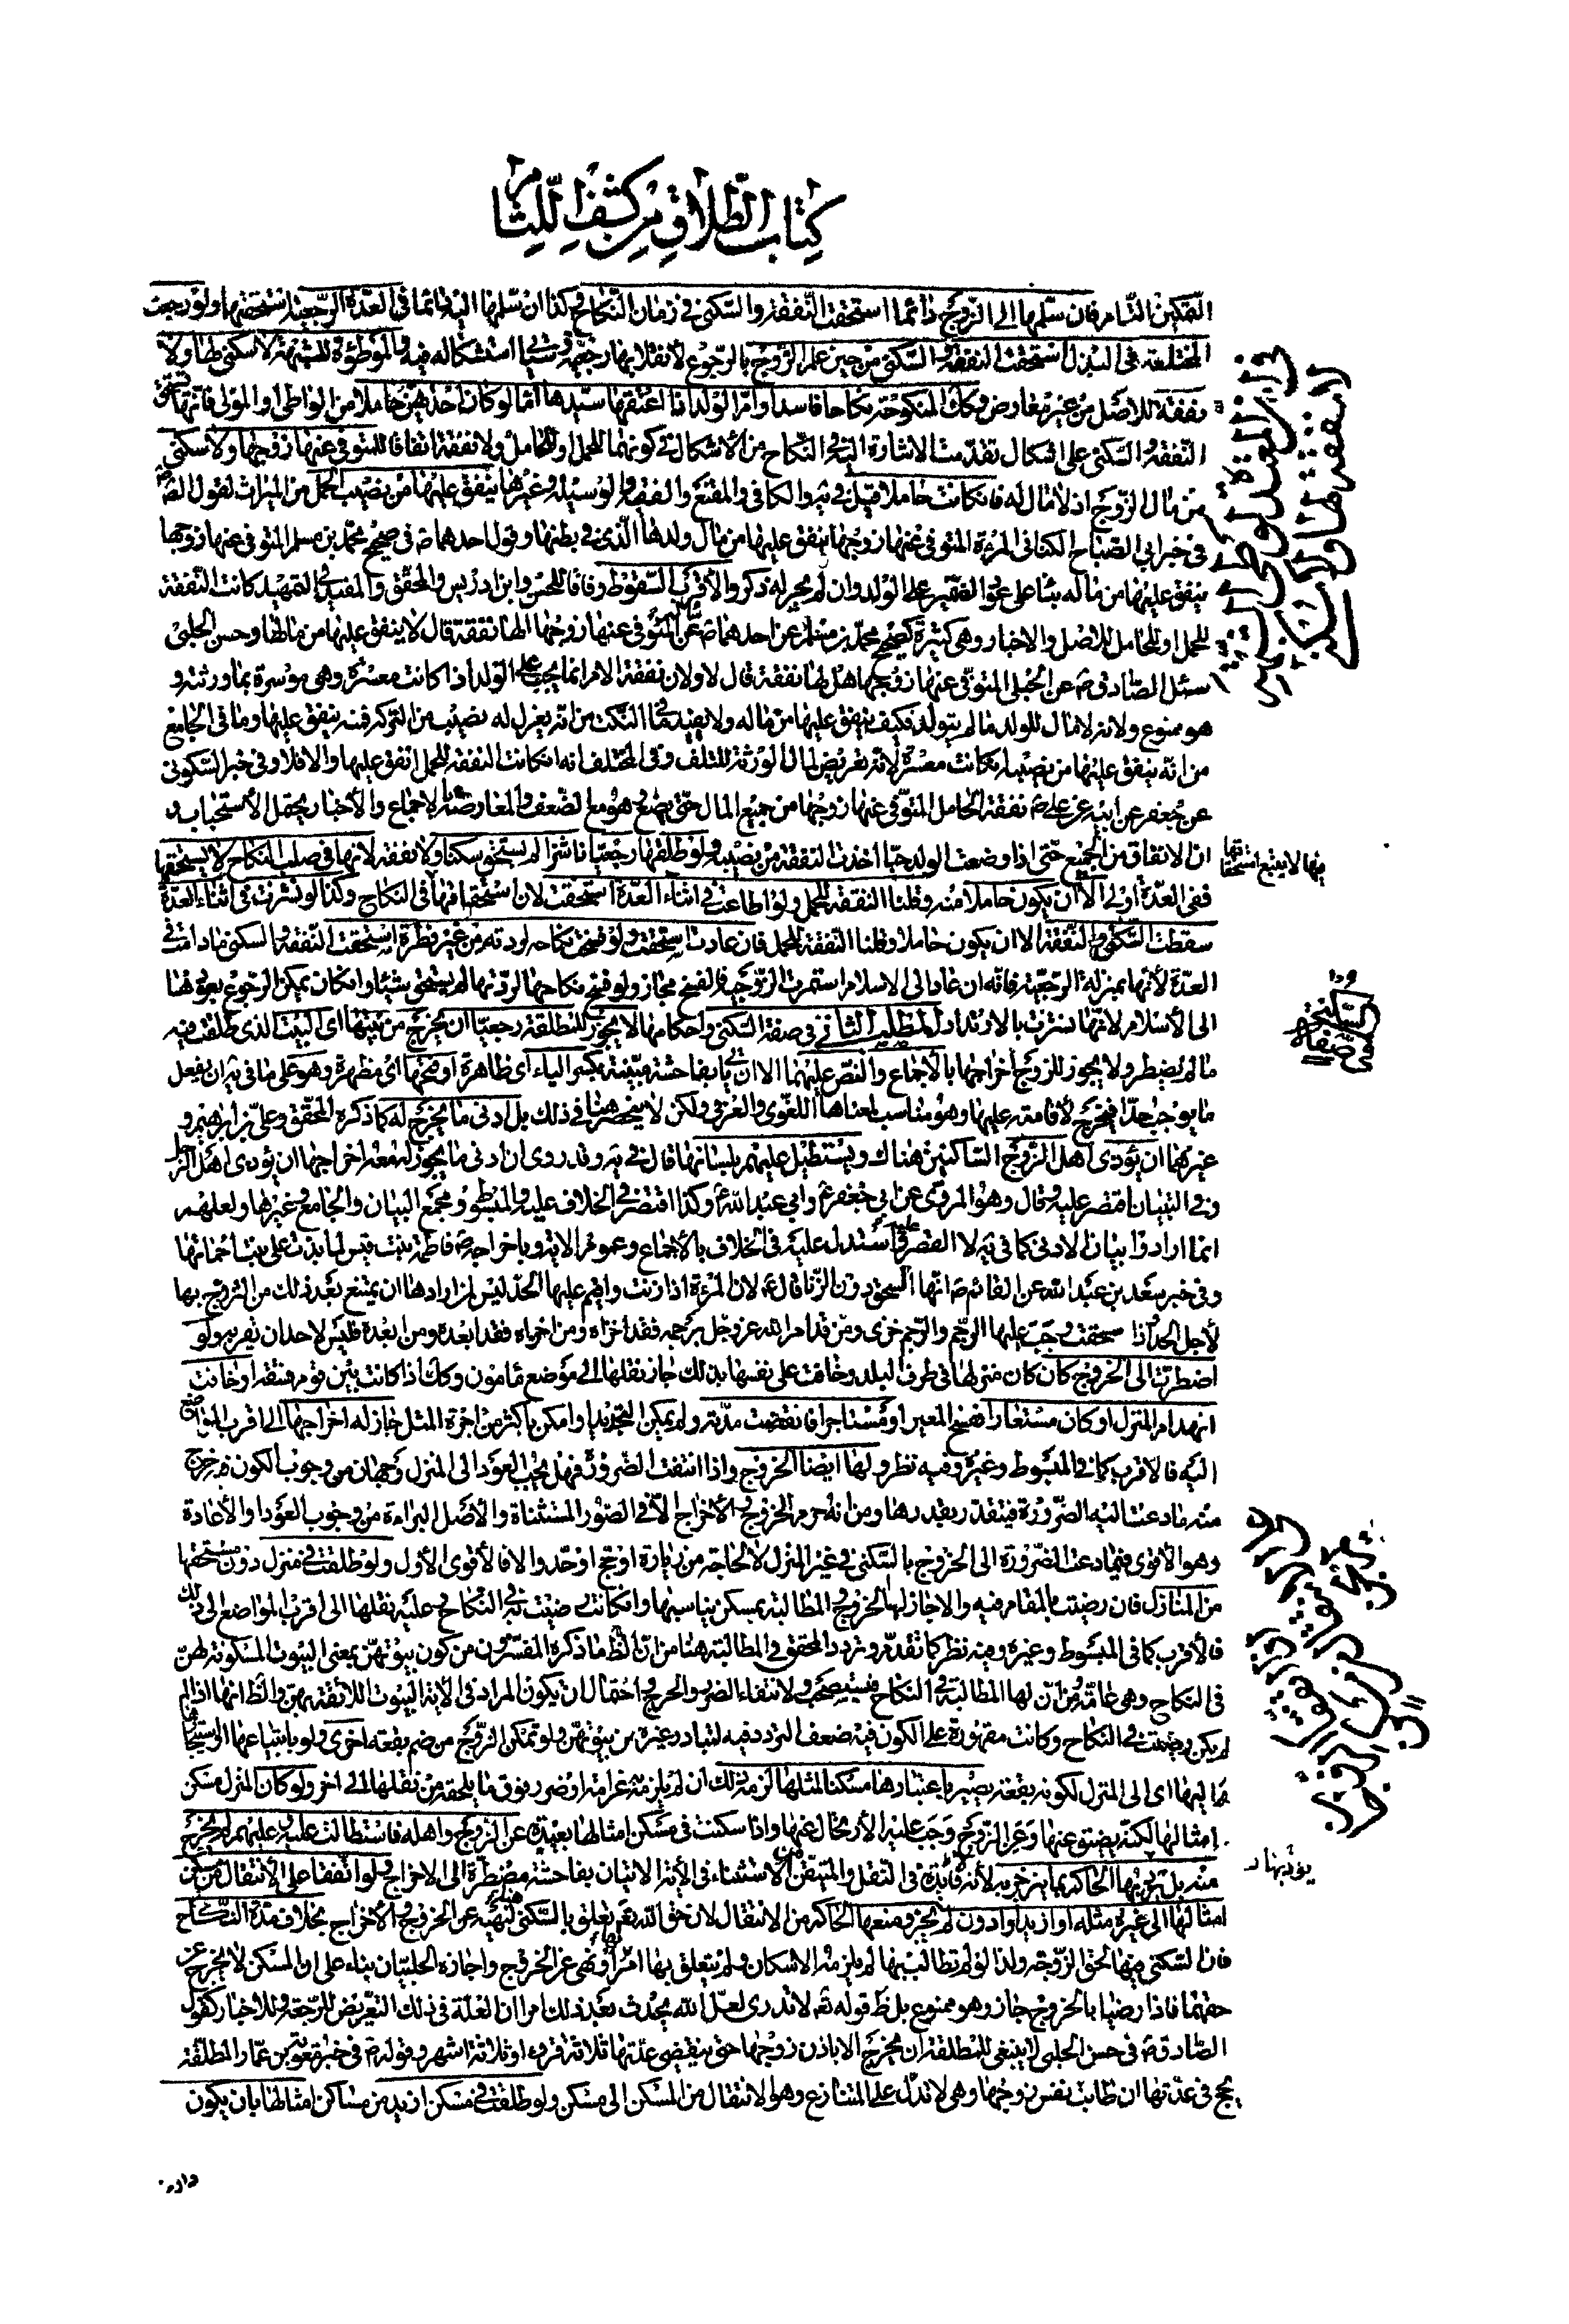 كتاب الطلاق من كشف اللثام
التمكين التام فان سلمها الى الزوج دائما استحقت النفقة والسكنى في زمان النكاح وكذا ان سلمها اليه دائما في العدة الرجعية استحقتهما ولو رجعت
المختلعة في البذل استحقت النفقة والسكنى من حين علم الزوج بالرجوع لانقلابها رجعية وسيأتي استشكاله فيه والموطوءة للشبهة لا سكنى لها ولا
نفقة للاصل من غير معارض وكك المنكوحة نكاحا فاسدا وام الولد اذا اعتقها سيدها اما لو كان احدهن حاملا من الواطى او المولى فانها تستحق
النفقة والسكنى على اشكال تقدمت الاشارة اليه في النكاح من الاشكال في كونهما للحمل او للحامل ولا نفقة اتفاقا للمتوفى عنها زوجها ولا سكنى
من مال الزوج اذ لا مال له فان كانت حاملا قيل في يه والكافي والمقنع والفقيه والوسيلة وغيرها ينفق عليها من نصيب الحمل من الميراث لقول الصادق
في خبر ابي الصباح الكناني المرءة المتوفى عنها زوجها ينفق عليها من مال ولدها الذى في بطنها وقول احدهما ع في صحيح محمد بن مسلم المتوفى عنها زوجها
ينفق عليها من ماله بناء على عود الضمير على الولد وان لم يجر له ذكر والاقرب السقوط وفاقا للحسن وابن ادريس والمحقق والمفيد في التمهيد كانت النفقة
للحمل او للحامل للاصل والاخبار وهى كثيرة كصحيح محمد بن مسلم عن احدهما ع سألته عن المتوفى عنها زوجها الها نفقة قال لا ينفق عليها من مالها وحسن الحلبى
سئل الصادق ع عن الحبلى المتوفى عنها زوجها هل لها نفقة قال لا ولان نفقة الام انما يجب على الولد اذا كانت معسرة وهى موسرة بما ورثته و
هو ممنوع ولانه لا مال للولد ما لم يتولد فكيف ينفق عليها من ماله ولا يفيد ما في النكت من انه يعزل له نصيب من التركة فمنه ينفق عليها وما في الجامع
من انه ينفق عليها من نصيبه ان كانت معسرة لانه تعريض لمال الورثة للتلف وفى المختلف انه ان كانت النفقة للحمل انفق عليها والا فلا وفى خبر السكونى
عن جعفر عن ابيه عن على ع نفقة الحامل المتوفى عنها زوجها من جميع المال حتى تضع وهو مع الضعف والمعارضة بالاجماع والاخبار يحتمل الاستحباب و
ان الانفاق من الجميع حتى اذا وضعت الولد حيا اخذت النفقة من نصيبه ولو طلقها رجعيا ناشزا لم تستحق سكنا ولا نفقة لانها في صلب النكاح لا يستحقها
ففى العدة اولى الا ان يكون حاملا منه وقلنا النفقة للحمل ولو اطاعت في اثناء العدة استحقت لان استحقاقها في النكاح وكذا لو نشزت في اثناء العدة
سقطت السكنى والنفقة الا ان يكون حاملا وقلنا النفقة للحمل فان عادت استحقت ولو فسخت نكاحه لردته من غير نظرة استحقت النفقة والسكنى ما دامت في
العدة لانها بمنزلة الرجعية فانه ان عاد الى الاسلام استمرت الزوجية والفسخ مجاز ولو فسخ نكاحها لردتها لم يستحق شيئا وان كان يمكن الرجوع بعودها
الى الاسلام لانها نشزت بالارتداد المطلب الثاني في صفة السكنى واحكامها لا يجوز للمطلقة رجعيا ان يخرج من بيتها اى البيت الذى طلقت فيه
ما لم يضطر ولا يجوز للزوج اخراجها بالاجماع والنص عليهما الا ان يأتي بفاحشة مبينة بكسر الياء اى ظاهرة او فتحها اى مظهرة وهو على ما في يه ان يفعل
ما يوجب حدا فيخرج لاقامته عليها وهو مناسب لمعناها اللغوى والعرفى ولكن لا ينحصر هنا في ذلك بل ادنى ما يخرج له كما ذكره المحقق وعلى بن ابراهيم و
غيرهما ان يؤذى اهل الزوج الساكنين هناك ويستطيل عليهم بلسانها قال في يه وقد روى ان ادنى ما يجوز له معه اخراجها ان يؤذى اهل الرجل
وفى التبيان اقتصر عليه وقال وهو المروى عن ابى جعفر ع وابى عبد الله ع وكذا اقتصر في الخلاف عليه والمبسوط ومجمع البيان والجامع وغيرها ولعلهم
انما ارادوا بيان الادنى كما في يه لا القصر عليه واستدل عليه في الخلاف بالاجماع وعموم الاية وباخراجه ص فاطمة بنت قيس لما بذت على بيت احمائها
وفى خبر سعد بن عبد الله عن القائم ع انها السحق دون الزنا قال ع لان المرءة اذا زنت واقيم عليها الحد ليس لمن ارادها ان يمتنع بعد ذلك من التزوج بها
لاجل الحد واذا سحقت وجب عليها الرجم والرجم خزى ومن قد امر الله عز وجل برجمه فقد اخزاه ومن اخزاه فقد ابعده ومن ابعده فليس لاحد ان يقربه ولو
اضطرت الى الخروج كان كان منزلها في طرف البلد وخافت على نفسها بذلك جاز نقلها الى موضع مامون وكك اذا كانت بين قوم فسقة او خافت
انهدام المنزل او كان مستعارا ففسخ المعير او مستاجرا فانقضت مدته ولم يمكن التجديد او امكن باكثر من اجرة المثل جاز له اخراجها الى اقرب المواضع
اليه فالاقرب كما في المبسوط وغيره وفيه نظر ولها ايضا الخروج واذا انتفت الضرورة فهل يجب العود الى المنزل وجهان من وجوب الكون فيه خرج
منه ما دعت اليه الضرورة فيتقدر بقدرها ومن انه حرم الخروج والاخراج الا في الصور المستثناة والاصل البراءة من وجوب العود او الاعادة
وهو الاقوى فيما دعت الضرورة الى الخروج بالسكنى في غير المنزل لا لحاجة من زيارة او حج او حد والا فالاقوى الاول ولو طلقت في منزل دون مستحقها
من المنازل فان رضيت بالمقام فيه والا جاز لها الخروج والمطالبة بمسكن يناسبها وان كانت رضيت به في النكاح وعليه نقلها الى اقرب المواضع الى ذلك
فالاقرب كما في المبسوط وغيره وفيه نظر كما تقدم وتردد المحقق في المطالبة هنا من ان الظ ما ذكره المفسرون من كون بيوتهن بمعنى البيوت المسكونة لهن
في النكاح وهى عامة ومن ان لها المطالبة في النكاح فيستصحب ولانتفاء الضرر والحرج واحتمال ان يكون المراد في الاية البيوت اللائقة بهن والظ انها اذا لم
لم يكن رضيت في النكاح وكانت مقهورة على الكون فيه ضعف التردد فيه لتبادر غيره من بيوتهن ولو تمكن الزوج من ضم بقعة اخرى ولو بابتياعها او استيجارها
اليها اى الى المنزل لكونه بقعة يصير باعتبارها مسكنا لمثلها لزمه ذلك ان لم يلزمه غرامة او ضرر يفوق ما يلحقه من نقلها الى اخر ولو كان المنزل مسكن
امثالها لكنه يضيق عنها وعن الزوج وجب عليه الارتحال عنها واذا سكنت في مسكن امثالها بعيدة عن الزوج واهله فاستطالت عليه وعليهم لم يخرج
منه بل يؤدبها الحاكم بما ينزجر به لانه لا فائدة في النقل والمتيقن من الاستثناء في الاية الاتيان بفاحشة مضطرة الى الاخراج ولو اتفقا على الانتقال من مسكن
امثالها الى غيره مثله او ازيد او ادون لم يجز ومنعها الحاكم من الانتقال لان حق الله تعم تعلق بالسكنى هنا لنهيه عن الخروج والاخراج بخلاف مدة النكاح
فان السكنى فيها لحق الزوجة ولذا لو لم تطالب بها لم يلزمه الاسكان ولم يتعلق بها امر او نهى عن الخروج واجازه الحلبيان بناء على ان المسكن لا يخرج عن
حقهما فاذا رضيا بالخروج جاز وهو ممنوع بل ظ قوله تع لا تدرى لعل الله يحدث بعد ذلك امرا ان العلة في ذلك التعريض للرجعة وللاخبار كقول
الصادق ع في حسن الحلبى لا ينبغى للمطلقة ان يخرج الا باذن زوجها حتى ينقضى عدتها ثلاثة قروء او ثلاثة اشهر وقوله ع في خبر معوية بن عمار المطلقة
يحج في عدتها ان طابت نفس زوجها وهى لا تدل على المتنازع وهو الانتقال من المسكن الى مسكن ولو طلقت في مسكن ازيد من مساكن امثالها بان يكون